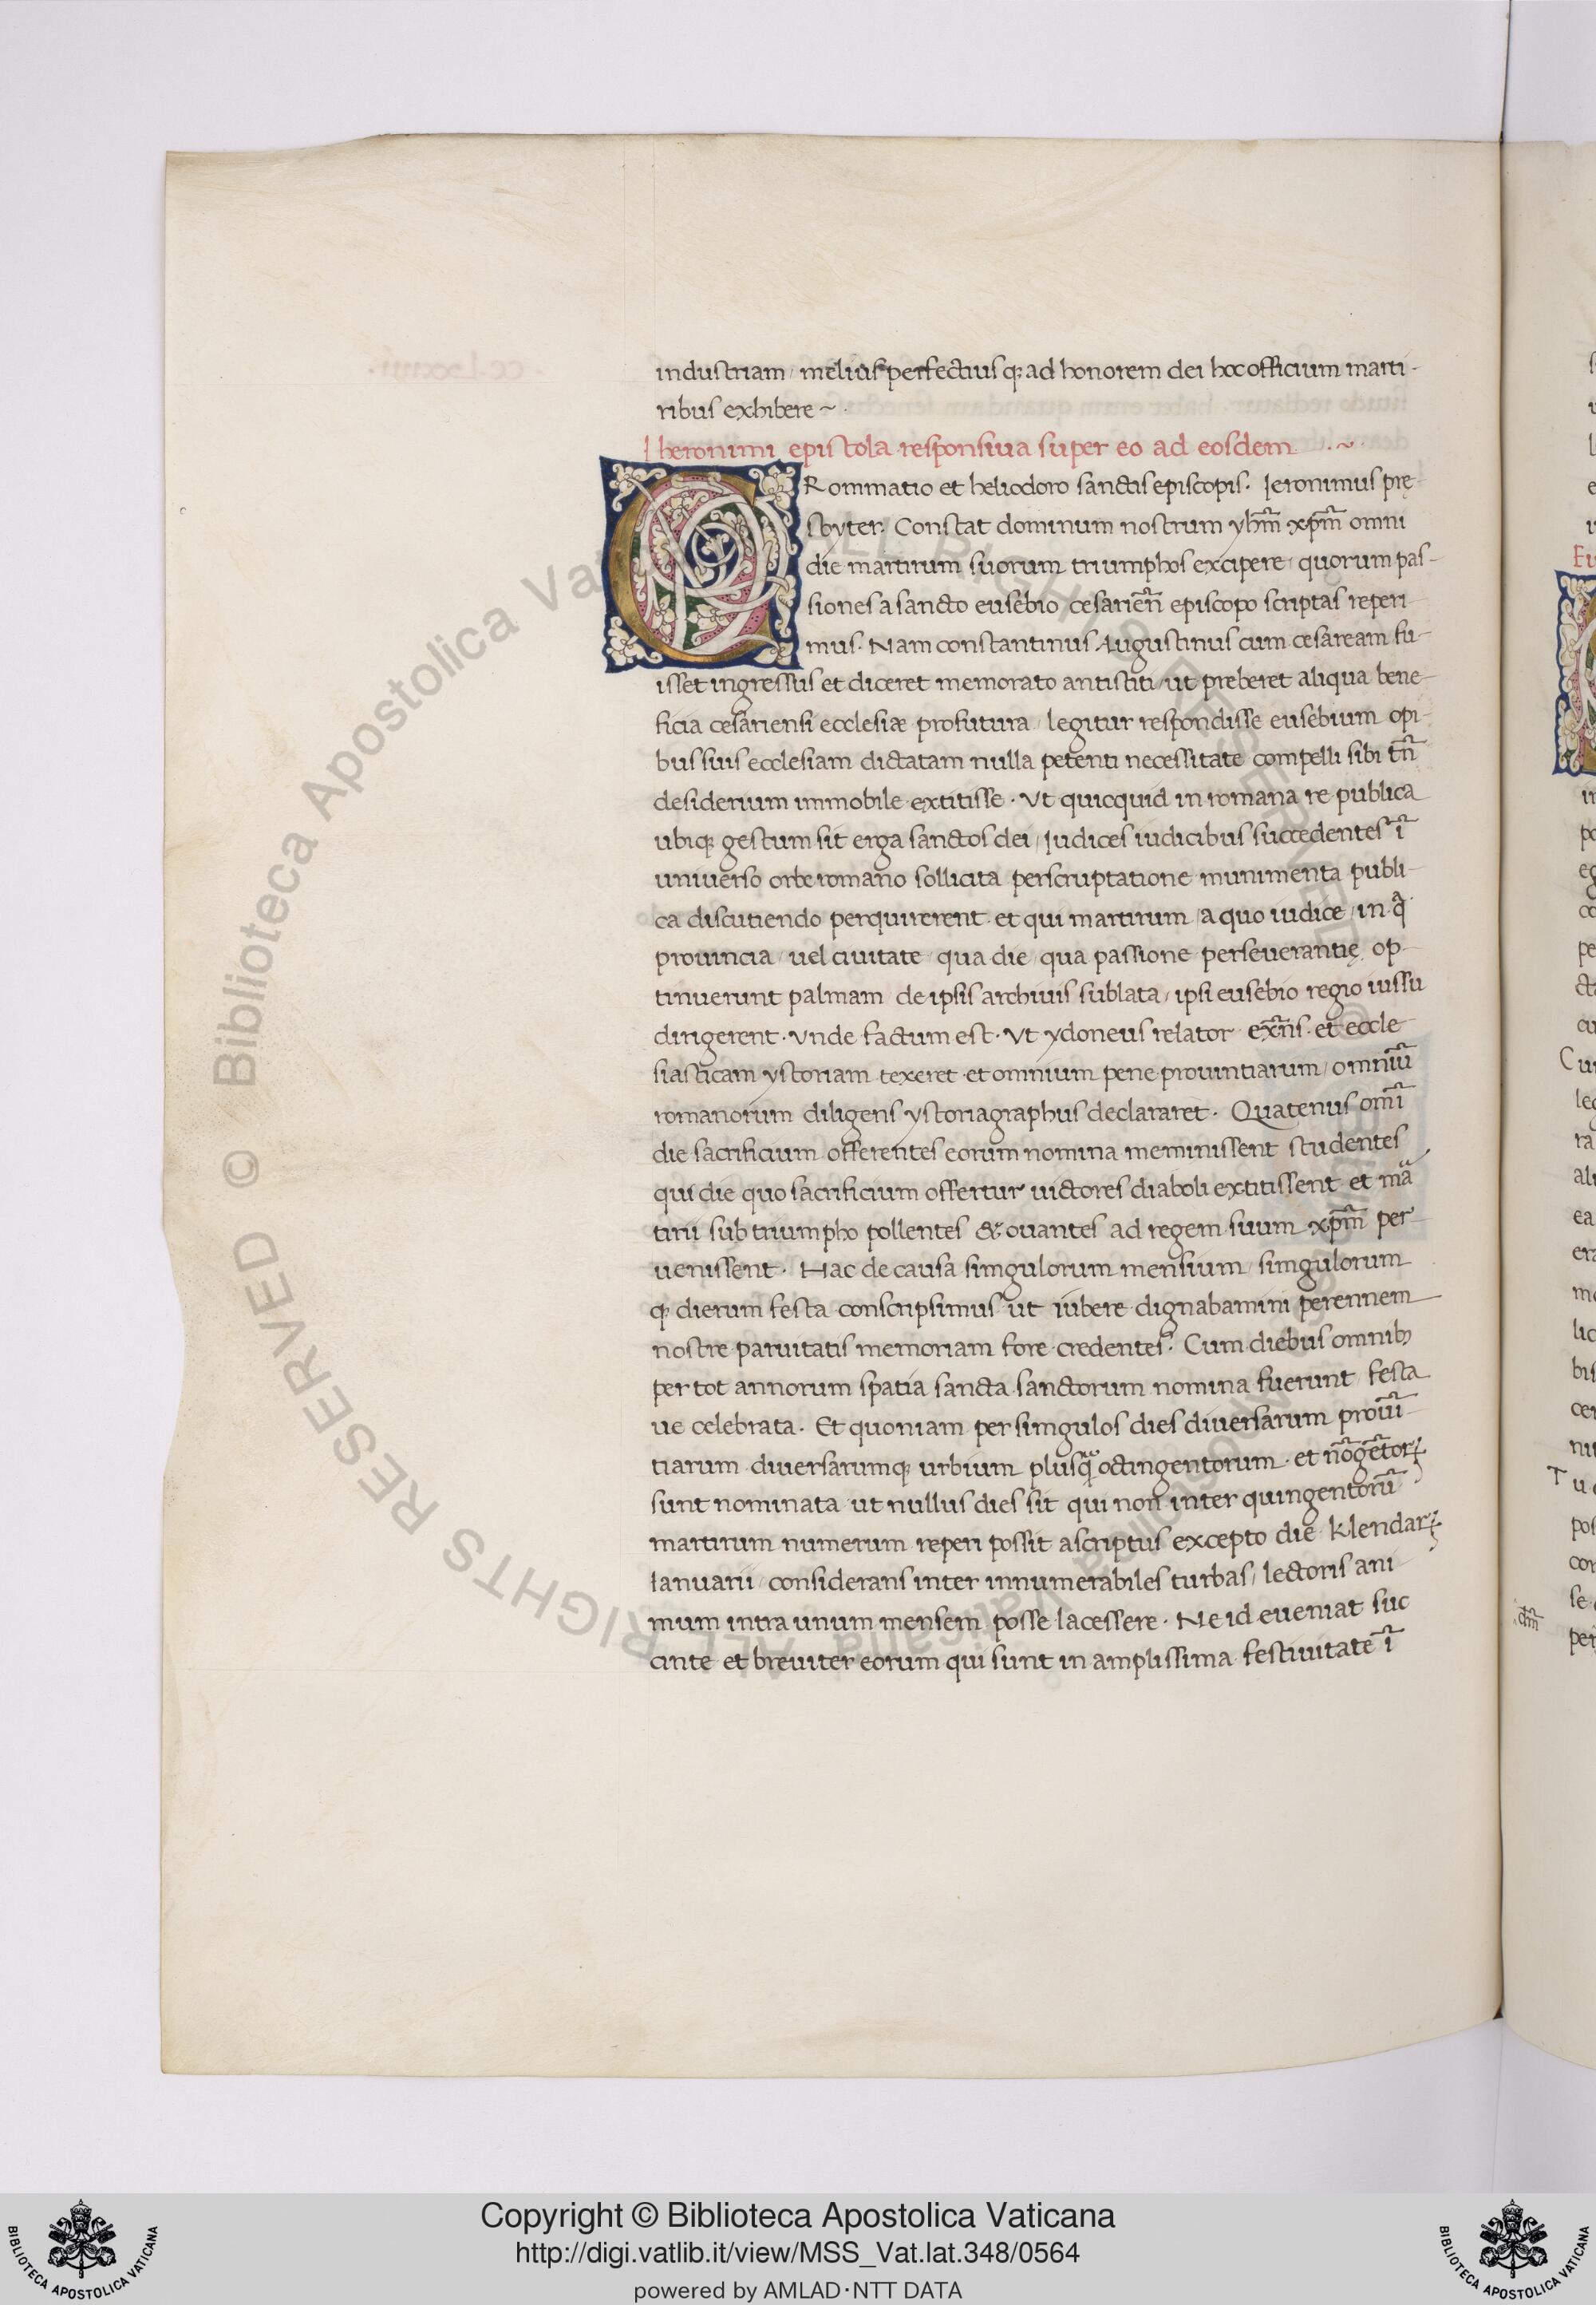 industriam / melius perfectius q; ad honorem dei hoc officium marti-
ribus exhibere ~ .
Iheronimi epistola responsiua super eo ad eosdem . . ~
CRommatio et heliodoro sanctis episcopis. Ieronimus pre-
sbyter. Constat dominum nostrum yhm̄ xpm̄ omni
die martirum suorum triumphos excipere / quorum pas-
siones a sancto eusebio cesarien̄ episcopo scriptas reperi
mus. Nam constantinus Augustinus cum cesaream fu-
isset ingressus et diceret memorato antistiti / ut preberet aliqua bene-
ficia cesariensi ecclesiæ profutura / legitur respondisse eusebium opi-
bus suis ecclesiam dictatam nulla petenti necessitate compelli sibi tn̄
desiderium immobile extitisse. Vt quicquid in romana re publica
ubiq; gestum sit erga sanctos dei / Iudices iudicibus succedentes ī
uniuerso orbe romano sollicita perscruptatione munimenta publi-
ca discutiendo perquirerent. et qui martirum / a quo iudice / in q̄
prouincia / uel ciuitate / qua die / qua passione perseuerantię op-
tinuerunt palmam de ipsis archiuis sublata / ipsi eusebio regio iussu
dirigerent. Vnde factum est. Vt ydoneus relator ex̄ns. et eccle
siasticam ystoriam texeret et omnium pene prouintiarum / omniū
romanorum diligens ystoriagraphus declararet. Quatenus omī
die sacrificium offerentes eorum nomina meminissent studentes
qui die quo sacrificium offertur uictores diaboli extitissent et mā
tirii sub triumpho pollentes & ouantes ad regem suum xpm̄ per
uenissent. Hac de causa simgulorum mensium / simgulorum
q; dierum festa conscripsimus ut iubere dignabamini perennem
nostre paruitatis memoriam fore credentes. Cum diebus omnib;
per tot annorum spatia sancta sanctorum nomina fuerunt festa
ue celebrata. Et quoniam per simgulos dies diuersarum prouī-
tiarum diuersarumq; urbium plusq̄ octingentorum. et nōgētorꝝ
sunt nominata ut nullus dies sit qui non inter quingentorū
martirum numerum reperi possit ascriptus excepto die klendarꝝ
Ianuarii / considerans inter innumerabiles turbas / lectoris ani
mum intra unum mensem posse lacessere. Ne id eueniat suc
cinte et breuiter eorum qui sunt in amplissima festiuitate ī
© Biblioteca Apostolica Vaticana ALL RIGHTS RESERVED
Copyright © Biblioteca Apostolica Vaticana
http://digi.vatlib.it/view/MSS_Vat.lat.348/0564
powered by AMLAD·NTT DATA
BIBLIOTECA APOSTOLICA VATICANA
BIBLIOTECA APOSTOLICA VATICANA